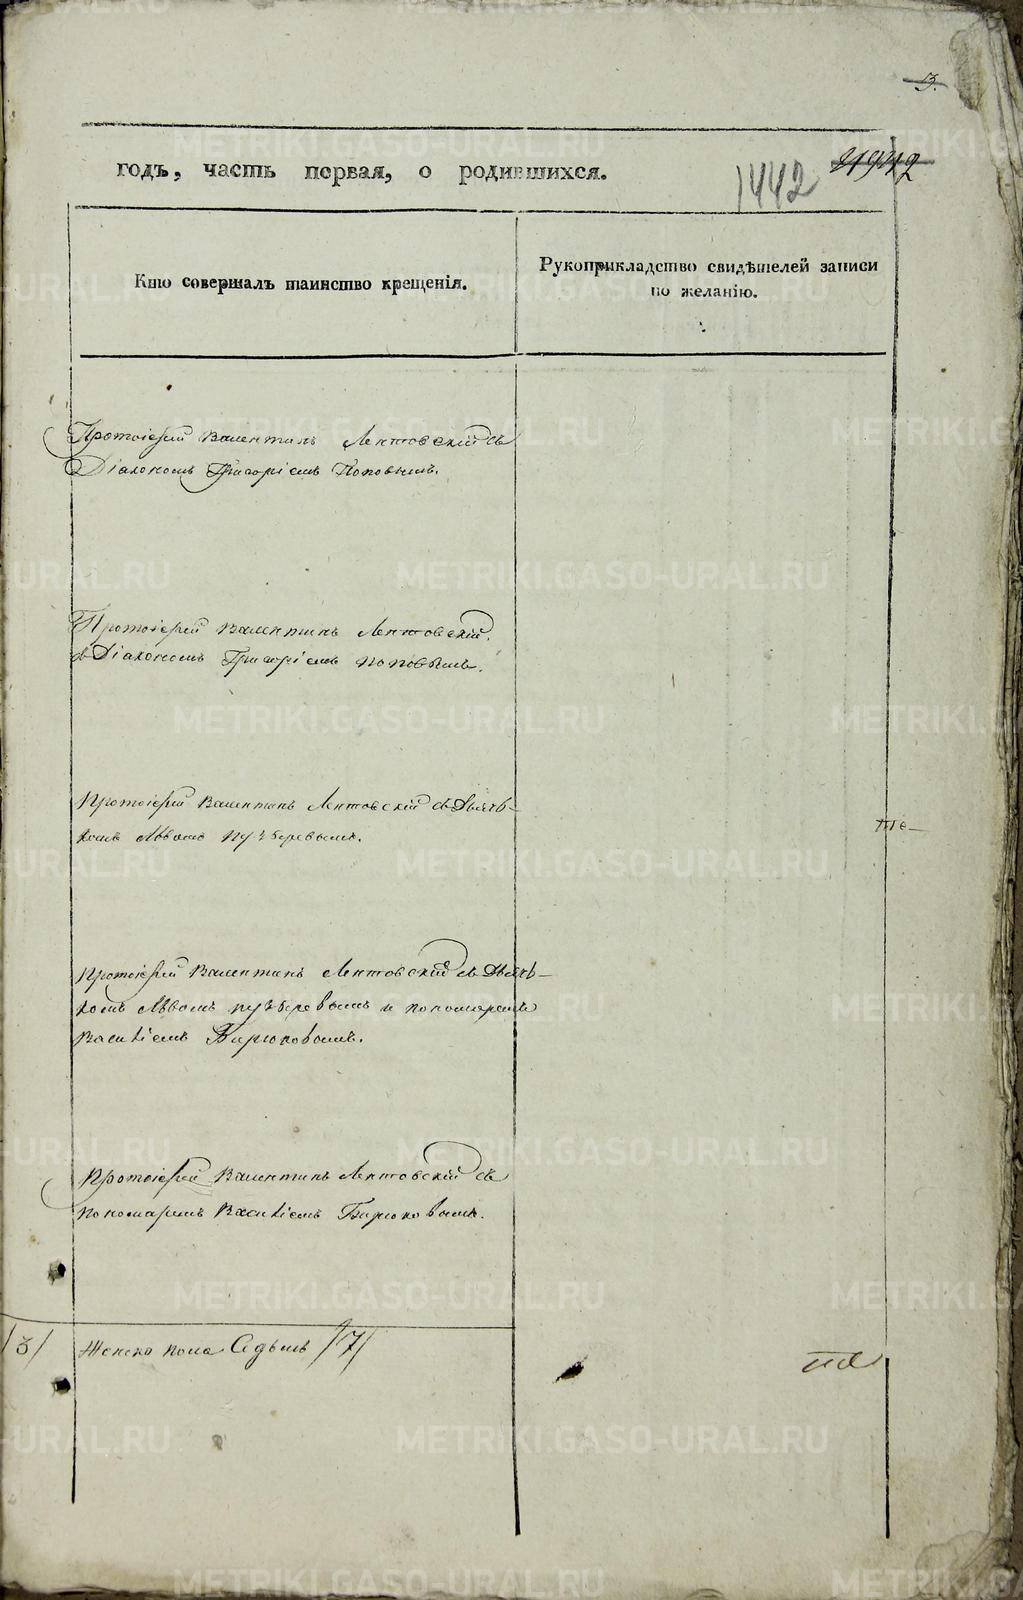 3.
годъ, часть первая, о родившихся.
1442
Кто совершалъ таинство крещенія.
Рукоприкладство свидѣтелей записи
по желанію.
Протоіерей Валентинъ Лептовскій съ
Діакономъ Григоріемъ Поповымъ.
Протоіерей Валентинъ Лептовскій
съ Діакономъ Григоріемъ Поповымъ.
Протоіерей Валентинъ Лептовскій съ Дьяч-
комъ Львомъ
Протоіерей Валентинъ Лептовскій съ Дьяч-
комъ Львомъ и пономаремъ
Василіемъ Бирюковымъ.
Протоіерей Валентинъ Лептовскій съ
пономаремъ Василіемъ Бирюковымъ.
/3/ Женска пола Седмь /7/
METRIKI.GASO-URAL.RU